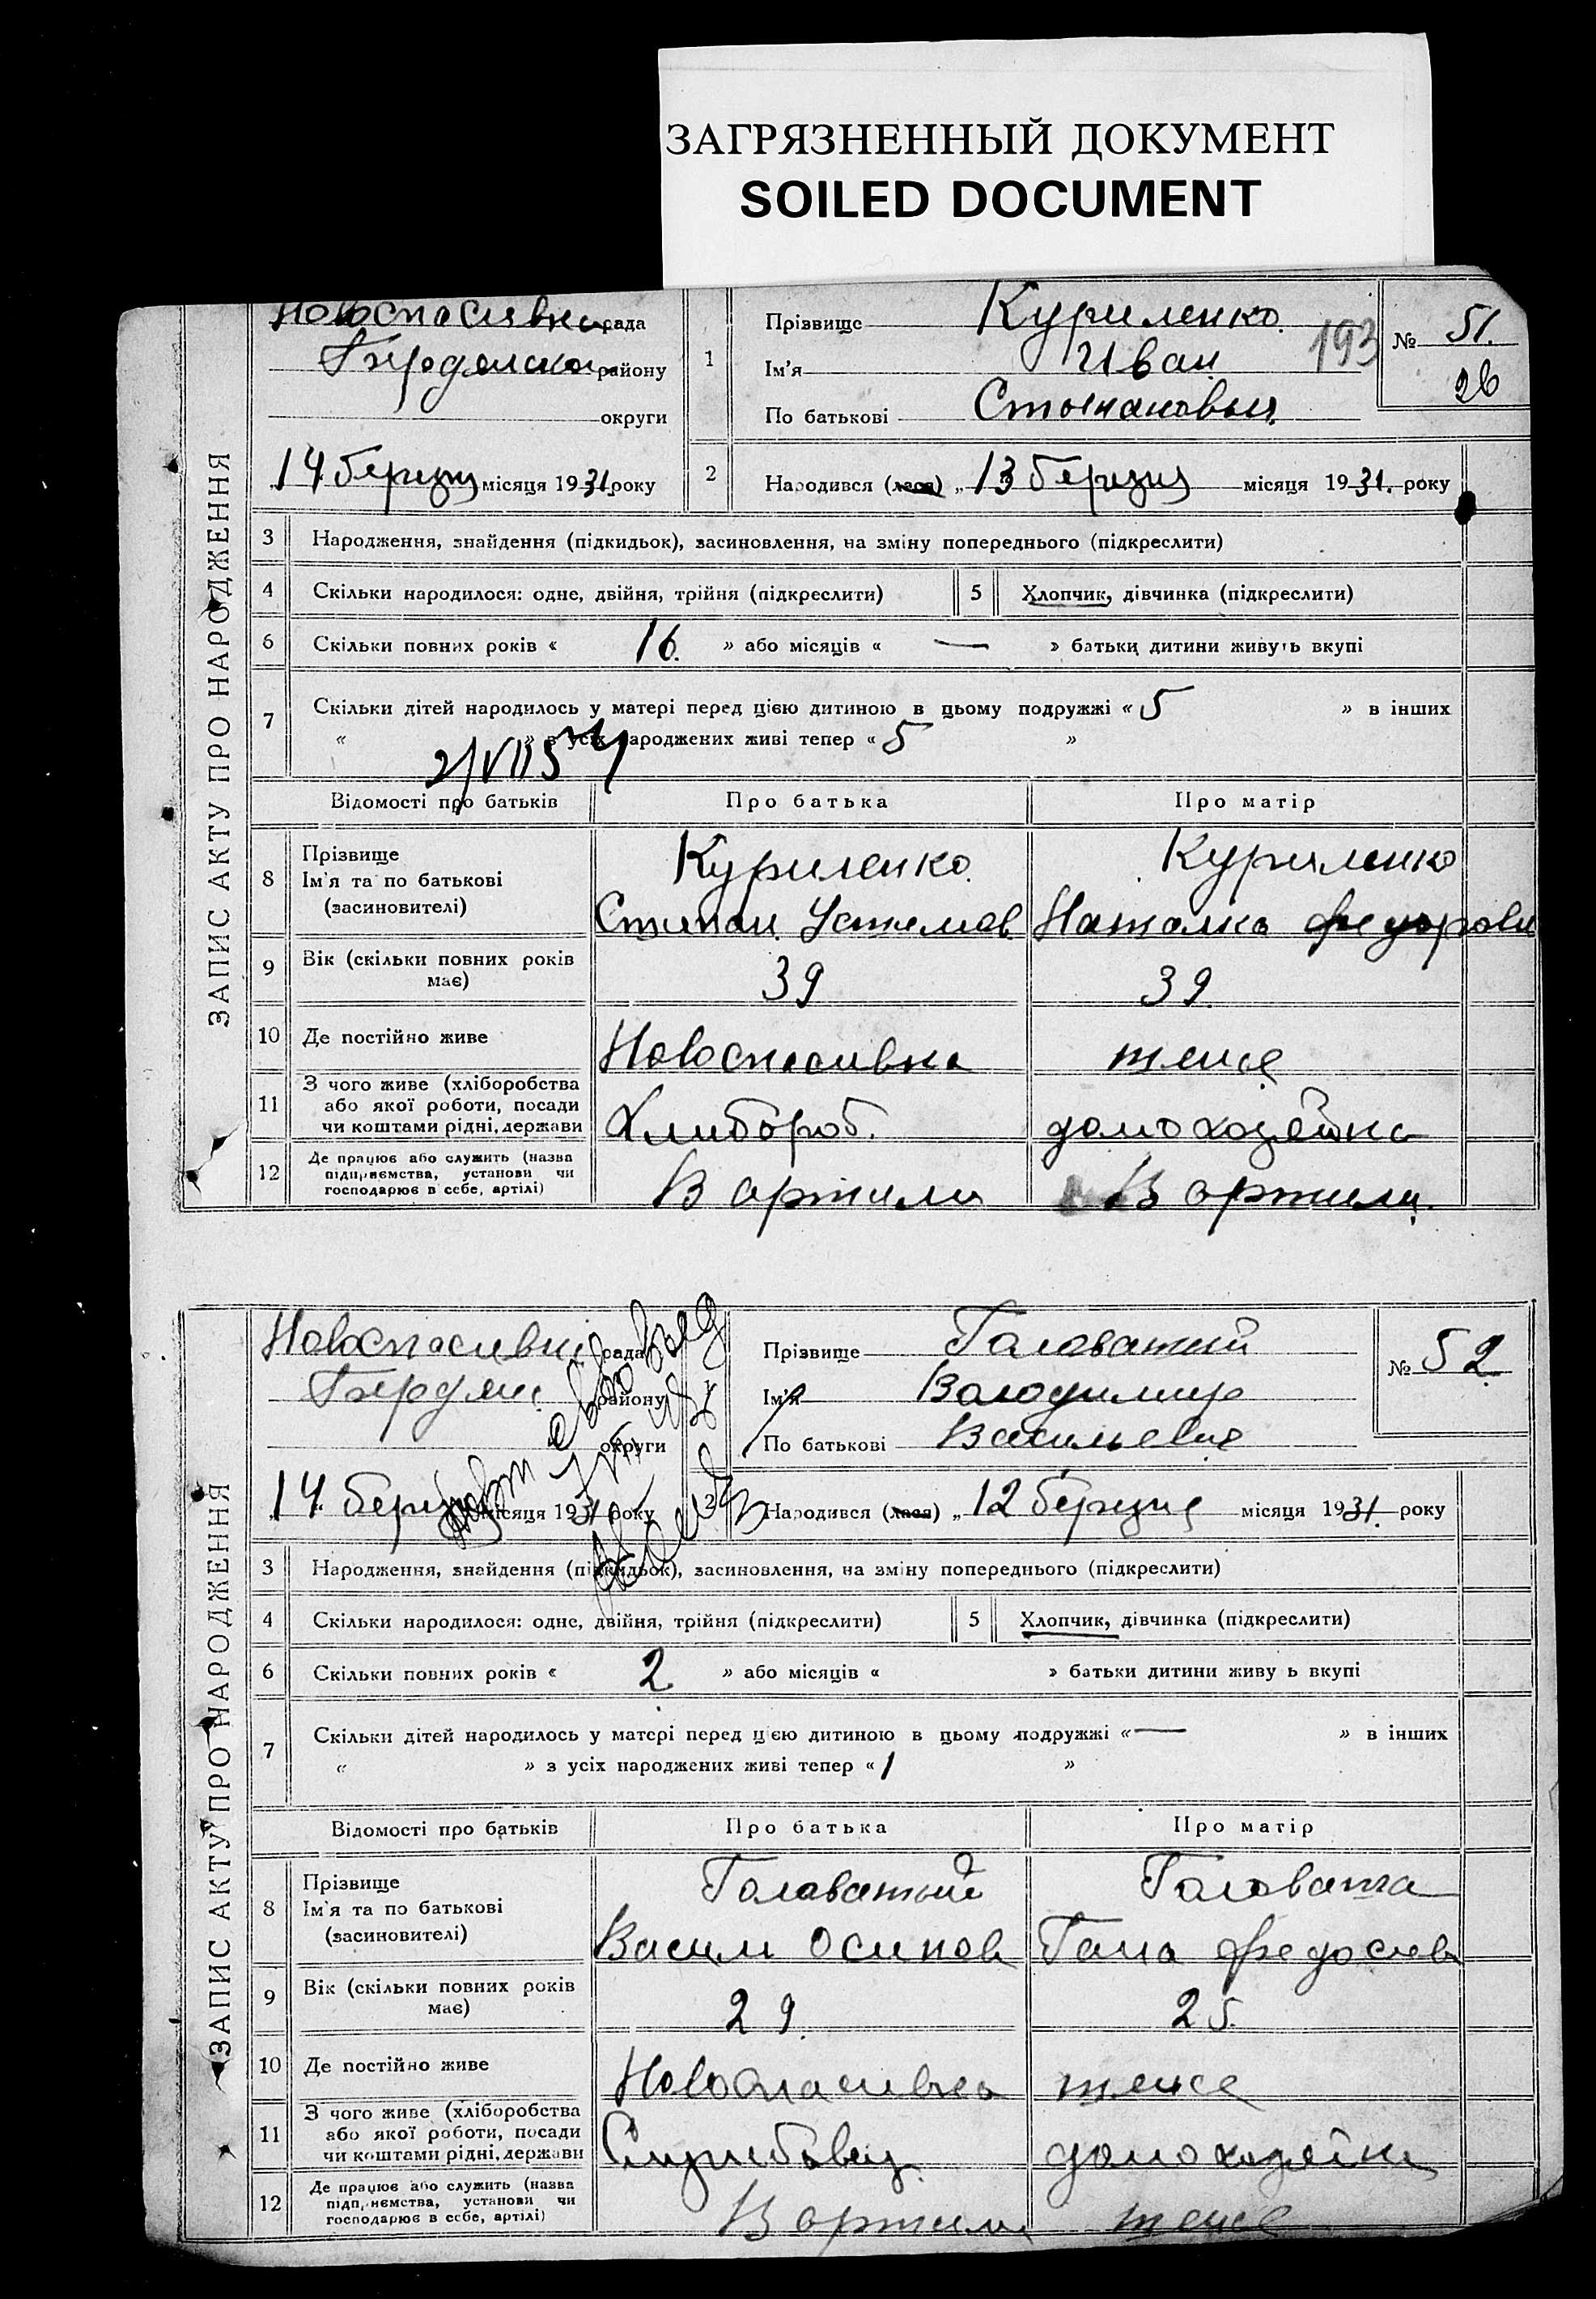 ЗАГРЯЗНЕННЫЙ ДОКУМЕНТ
SOILED DOCUMENT
ЗАПИС АКТУ ПРО НАРОДЖЕННЯ
Новоспасивка рада
Бердянськ району
округи
14 березня місяця 1931 року
1
Прізвище Куриленко
Ім'я Иван
По батькові
193
№ 51.
26
2
Народився (лася) „ 13 березня місяця 1931. року
3 Народження, знайдення (підкидьок), засиновлення, на зміну попереднього (підкреслити)
4 Скільки народилося: одне, двійня, трійня (підкреслити) 5 Хлопчик, дівчинка (підкреслити)
6 Скільки повних років « 16. » або місяців « — » батьки дитини живуть вкупі
7 Скільки дітей народилось у матері перед цією дитиною в цьому подружжі « 5 » в інших
« » з усіх народжених живі тепер « 5 »
2/VII 54
Відомості про батьків Про батька Про матір
8 Прізвище
Ім'я та по батькові
(засиновителі)
Куриленко Куриленко
Степан Устимов Наталка Федоровн
9 Вік (скільки повних років
має)
39 39.
10 Де постійно живе Новоспасивка теже
11 З чого живе (хліборобства
або якої роботи, посади
чи коштами рідні, держави
Хлибороб. домохозяйка
12 Де працює або служить (назва
підприємства, установи чи
господарює в себе, артілі)
В артили В артили
ЗАПИС АКТУ ПРО НАРОДЖЕННЯ
Новоспасивка рада
Бердянс району
округи
14 березня місяця 1931 року
Прізвище Головатий
Ім'я Володимир
По батькові Васильевич
№ 52
2
Народився (лася) „ 12 березня місяця 1931. року
3 Народження, знайдення (підкидьок), засиновлення, на зміну попереднього (підкреслити)
4 Скільки народилося: одне, двійня, трійня (підкреслити) 5 Хлопчик, дівчинка (підкреслити)
6 Скільки повних років « 2 » або місяців « » батьки дитини живу ь вкупі
7 Скільки дітей народилось у матері перед цією дитиною в цьому подружжі « — » в інших
« » з усіх народжених живі тепер « 1 »
Відомості про батьків Про батька Про матір
8 Прізвище
Ім'я та по батькові
(засиновителі)
Головатий Головата
Васили Осипов Гана Федосиев
9 Вік (скільки повних років
має)
29. 25.
10 Де постійно живе Новоспасивка теже
11 З чого живе (хліборобства
або якої роботи, посади
чи коштами рідні, держави
Службовец домохозяйка
12 Де працює або служить (назва
підприємства, установи чи
господарює в себе, артілі)
В артили теже